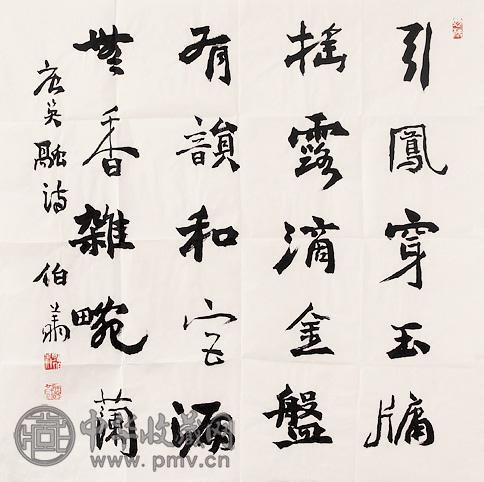 引鳳穿玉牖
搖露滴金盤
有韻和宫漏
無香雜畹蘭
唐吴融诗 伯萧
中华收藏网
www.pmv.cn